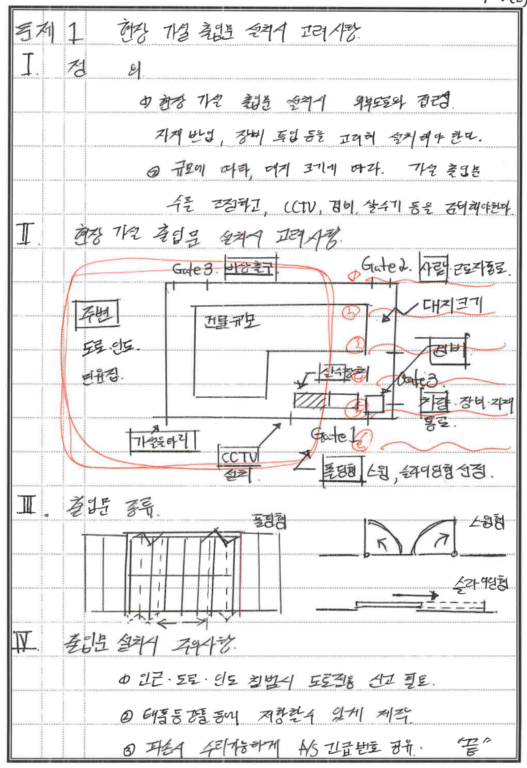 문제 1 현장 가설 출입문 설치시 고려사항.
I. 정 의
① 현장 가설 출입문 설치시 외부도로와 접근성.
자재 반입, 장비 투입 등을 고려하여 설치해야 한다.
② 규모에 따라, 대지 크기에 따라. 가설 출입문
수를 조절하고, CCTV, 경비, 살수기 등을 검토해야한다.
II. 현장 가설 출입문 설치시 고려사항.
Gate 3. 비상출구
Gate 2. 사람·근로자통로.
주변
도로·인도.
건물규모
대지크기
경비
Gate 3
차량·장비·자재
통로.
가설울타리
CCTV
설치
Gate 1
폴딩형, 스윙, 슬라이딩형 선정.
III. 출입문 종류.
폴딩형
스윙형
슬라이딩형
IV 출입문 설치시 주의사항.
① 인근·도로·인도 침범시 도로점용 신고 필요.
② 태풍등강풍 등에 저항할수 있게 제작.
③ 파손시 수리가능하게 A/S 긴급번호 공유. "끝"